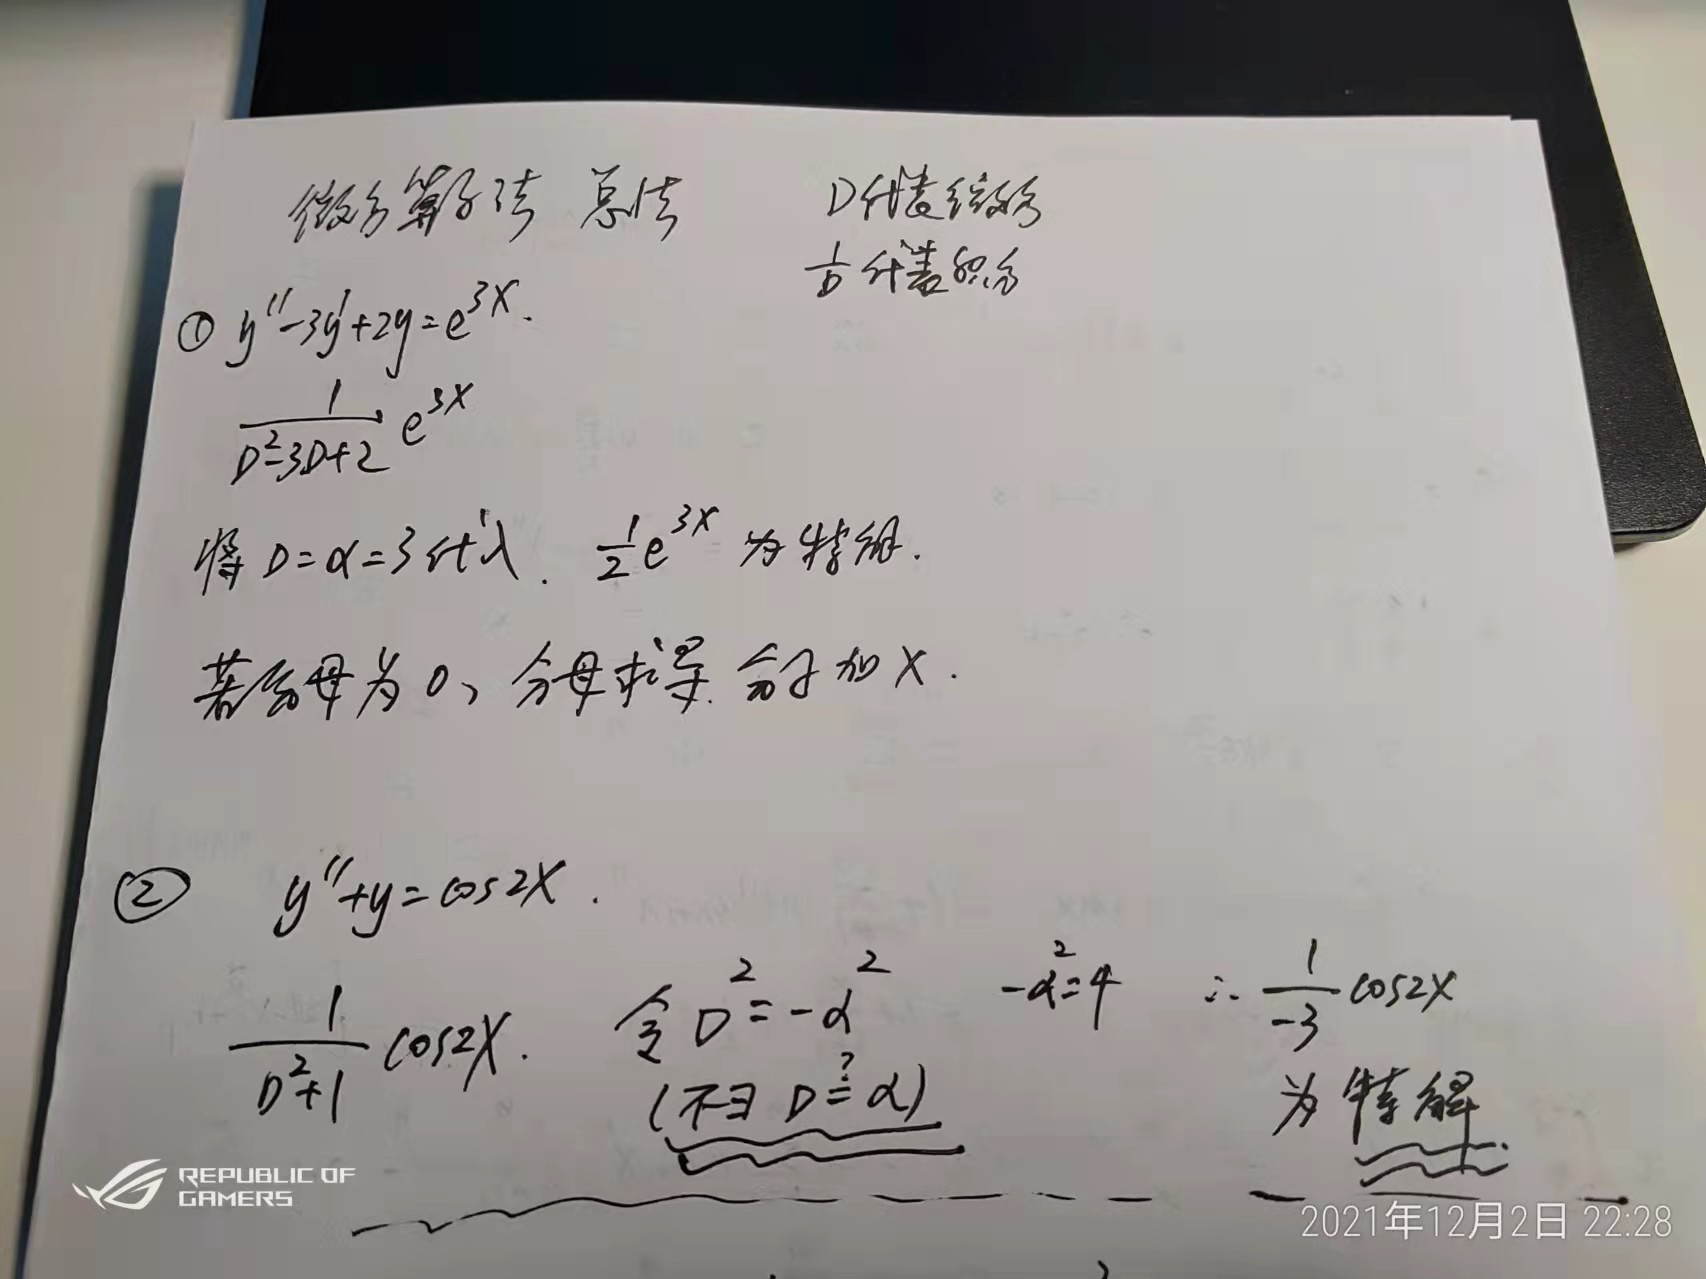 微分算子法 总结
D代表微分
1/D 代表积分
① y''-3y'+2y=e^{3x}.
1/(D²-3D+2) e^{3x}
将 D=α=3代入. 1/2 e^{3x} 为特解.
若分母为0, 分母求导 分子加X.
② y''+y=cos2X.
1/(D²+1) cos2X. 令 D²=-α² -α²=4 ∴ 1/-3 cos2X
(不 D²=α) 为特解
REPUBLIC OF
GAMERS
2021年12月2日 22:28